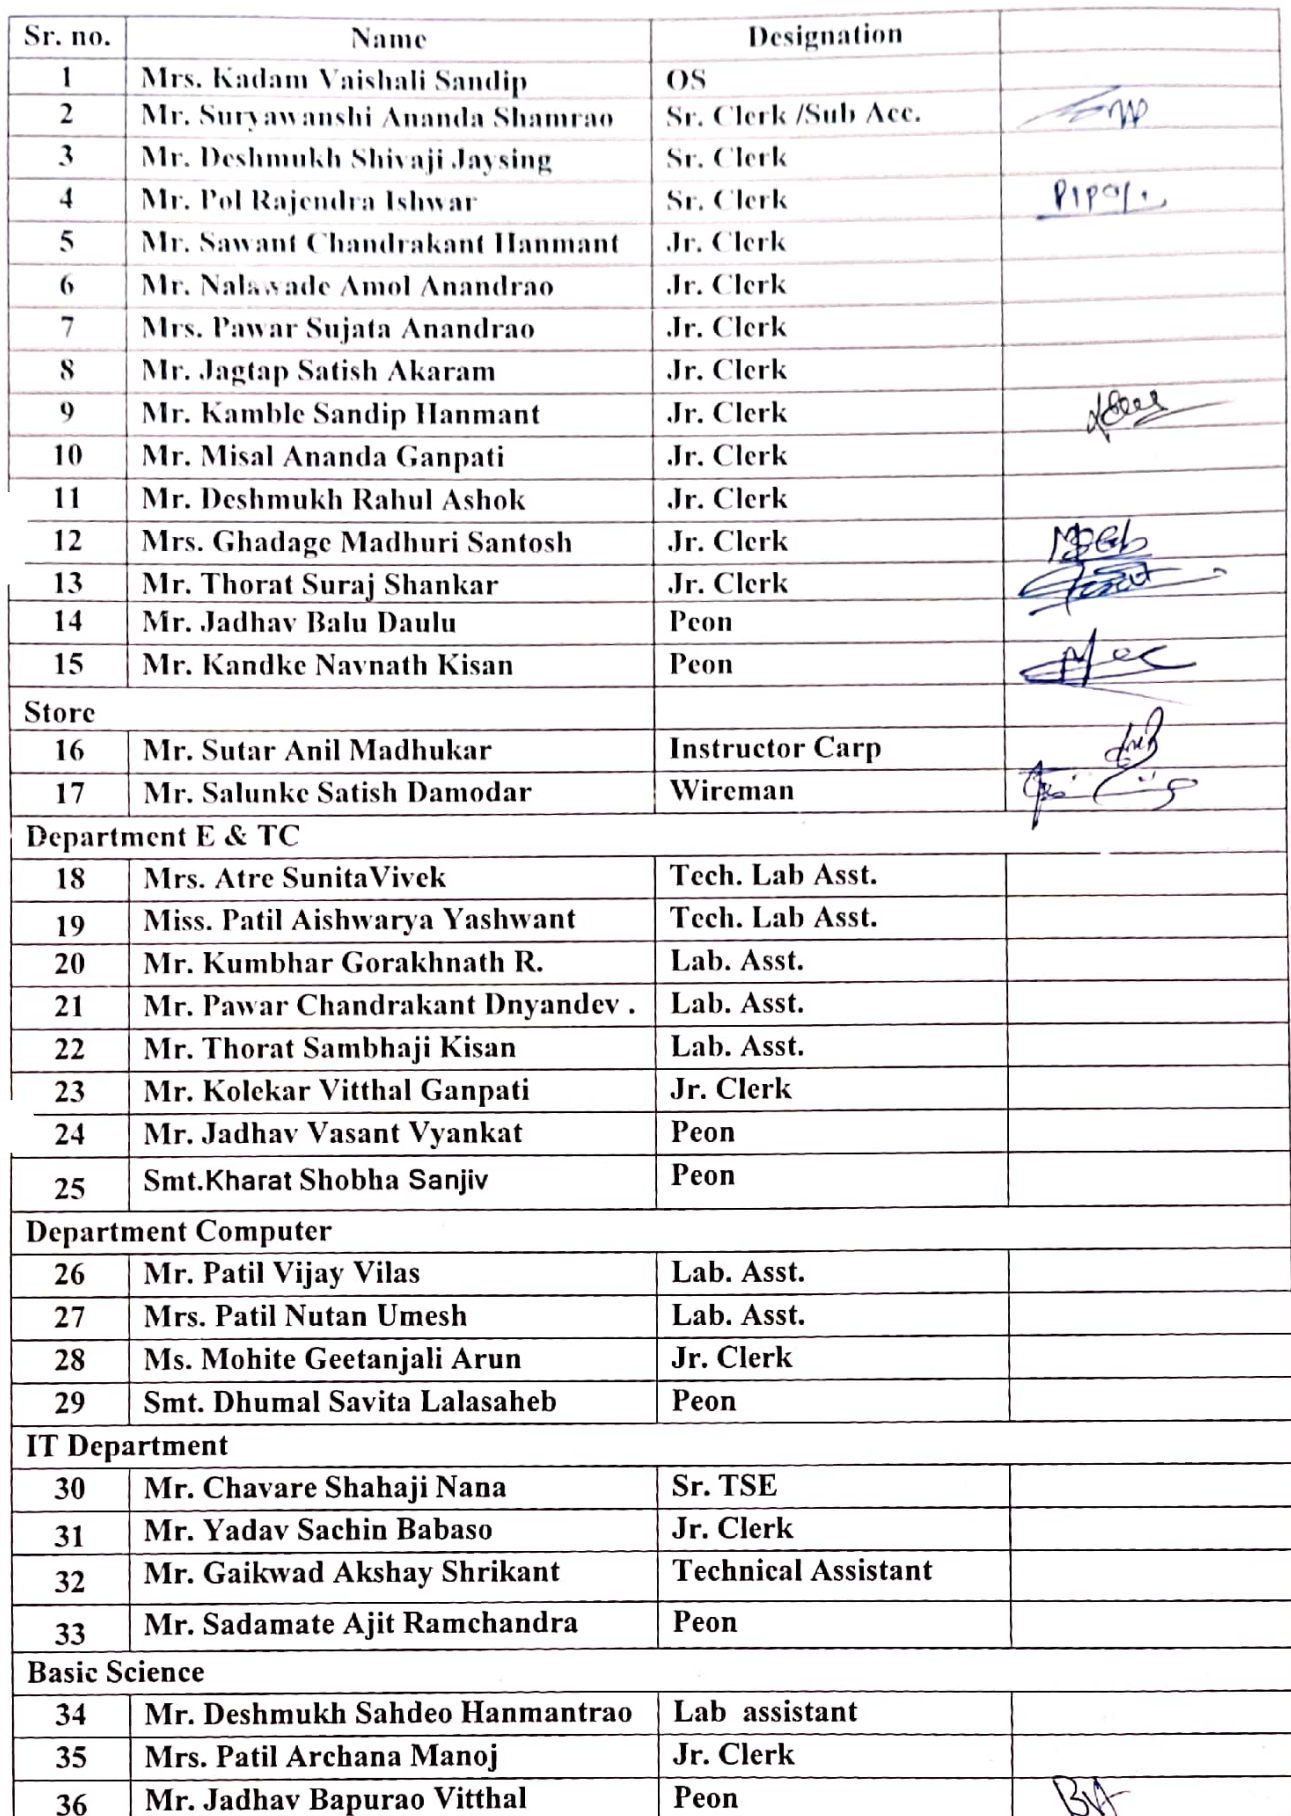 Sr. no. Name Designation
1 Mrs. Kadam Vaishali Sandip OS
2 Mr. Suryawanshi Ananda Shamrao Sr. Clerk /Sub Acc.
3 Mr. Deshmukh Shivaji Jaysing Sr. Clerk
4 Mr. Pol Rajendra Ishwar Sr. Clerk
5 Mr. Sawant Chandrakant Hanmant Jr. Clerk
6 Mr. Nalawade Amol Anandrao Jr. Clerk
7 Mrs. Pawar Sujata Anandrao Jr. Clerk
8 Mr. Jagtap Satish Akaram Jr. Clerk
9 Mr. Kamble Sandip Hanmant Jr. Clerk
10 Mr. Misal Ananda Ganpati Jr. Clerk
11 Mr. Deshmukh Rahul Ashok Jr. Clerk
12 Mrs. Ghadage Madhuri Santosh Jr. Clerk
13 Mr. Thorat Suraj Shankar Jr. Clerk
14 Mr. Jadhav Balu Daulu Peon
15 Mr. Kandke Navnath Kisan Peon
Store
16 Mr. Sutar Anil Madhukar Instructor Carp
17 Mr. Salunke Satish Damodar Wireman
Department E & TC
18 Mrs. Atre SunitaVivek Tech. Lab Asst.
19 Miss. Patil Aishwarya Yashwant Tech. Lab Asst.
20 Mr. Kumbhar Gorakhnath R. Lab. Asst.
21 Mr. Pawar Chandrakant Dnyandev . Lab. Asst.
22 Mr. Thorat Sambhaji Kisan Lab. Asst.
23 Mr. Kolekar Vitthal Ganpati Jr. Clerk
24 Mr. Jadhav Vasant Vyankat Peon
25 Smt.Kharat Shobha Sanjiv Peon
Department Computer
26 Mr. Patil Vijay Vilas Lab. Asst.
27 Mrs. Patil Nutan Umesh Lab. Asst.
28 Ms. Mohite Geetanjali Arun Jr. Clerk
29 Smt. Dhumal Savita Lalasaheb Peon
IT Department
30 Mr. Chavare Shahaji Nana Sr. TSE
31 Mr. Yadav Sachin Babaso Jr. Clerk
32 Mr. Gaikwad Akshay Shrikant Technical Assistant
33 Mr. Sadamate Ajit Ramchandra Peon
Basic Science
34 Mr. Deshmukh Sahdeo Hanmantrao Lab assistant
35 Mrs. Patil Archana Manoj Jr. Clerk
36 Mr. Jadhav Bapurao Vitthal Peon